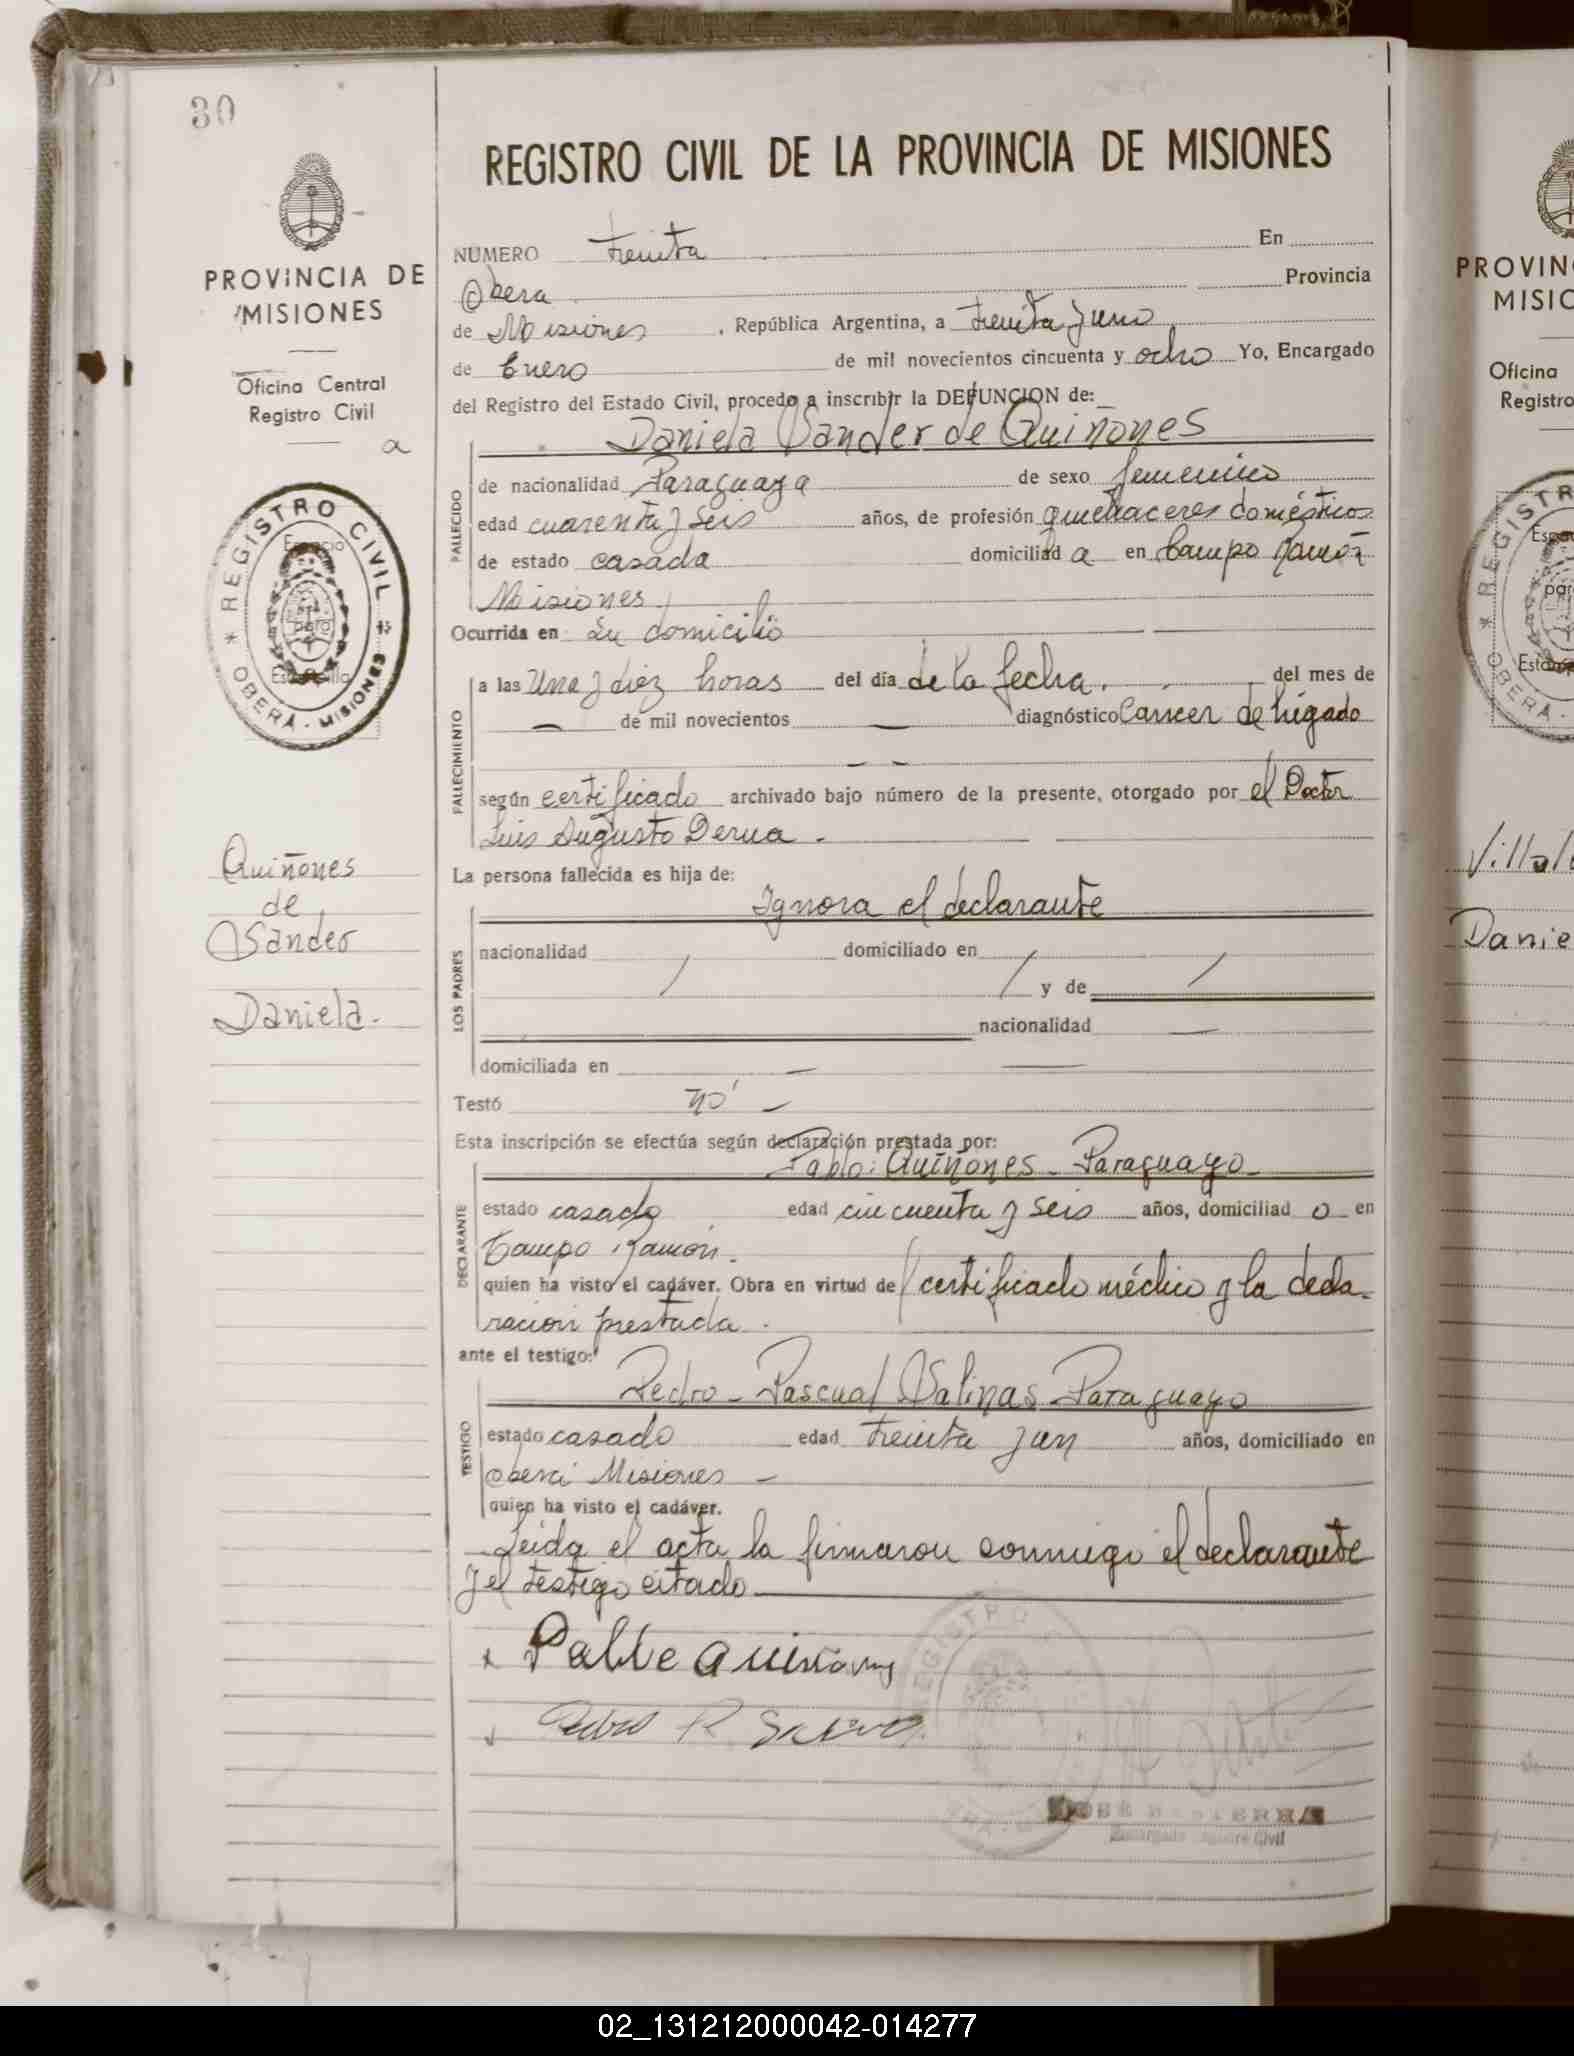 30
PROVINCIA DE
MISIONES
Oficina Central
Registro Civil
a
REGISTRO CIVIL
Espacio
para
Estampilla
* OBERÁ - MISIONES *
Quiñones
de
Sander
Daniela.
REGISTRO CIVIL DE LA PROVINCIA DE MISIONES
NUMERO treinta En
Obera Provincia
de Misiones , República Argentina, a treinta y uno
de Enero de mil novecientos cincuenta y ocho Yo, Encargado
del Registro del Estado Civil, procedo a inscribir la DEFUNCION de:
Daniela Sander de Quiñones
FALLECIDO
de nacionalidad Paraguaya de sexo femenino
edad cuarenta y seis años, de profesión quehaceres domésticos
de estado casada domiciliad a en Campo Ramón
Misiones.
Ocurrida en Su domicilio
FALLECIMIENTO
a las Una y diez horas del día de la fecha. del mes de
— de mil novecientos — diagnóstico Cancer de hígado
— —
según certificado archivado bajo número de la presente, otorgado por el Doctor
Luis Augusto Derna.
La persona fallecida es hija de:
Ignora el declarante
LOS PADRES
nacionalidad / domiciliado en /
y de /
nacionalidad —
domiciliada en — —
Testó no —
Esta inscripción se efectúa según declaración prestada por:
Pablo: Quiñones - Paraguayo -
DECLARANTE
estado casado edad cincuenta y seis años, domiciliad o en
Campo Ramón.
quien ha visto el cadáver. Obra en virtud de / certificado médico y la decla-
ración prestada.
ante el testigo:
Pedro - Pascual Salinas - Paraguayo
TESTIGO
estado casado edad treinta y un años, domiciliado en
Oberá Misiones -
quien ha visto el cadáver.
Leida el acta la firmaron conmigo el declarante
y el testigo citado
x Pablo Quiñones
Pedro P. Salinas
REGISTRO
JOSÉ
Encargado Registro Civil
PROVIN
MISIO
Oficina
Registro
REGISTR
Espa
par
Estam
* OBERÁ -
Villal
Danie
02_131212000042-014277